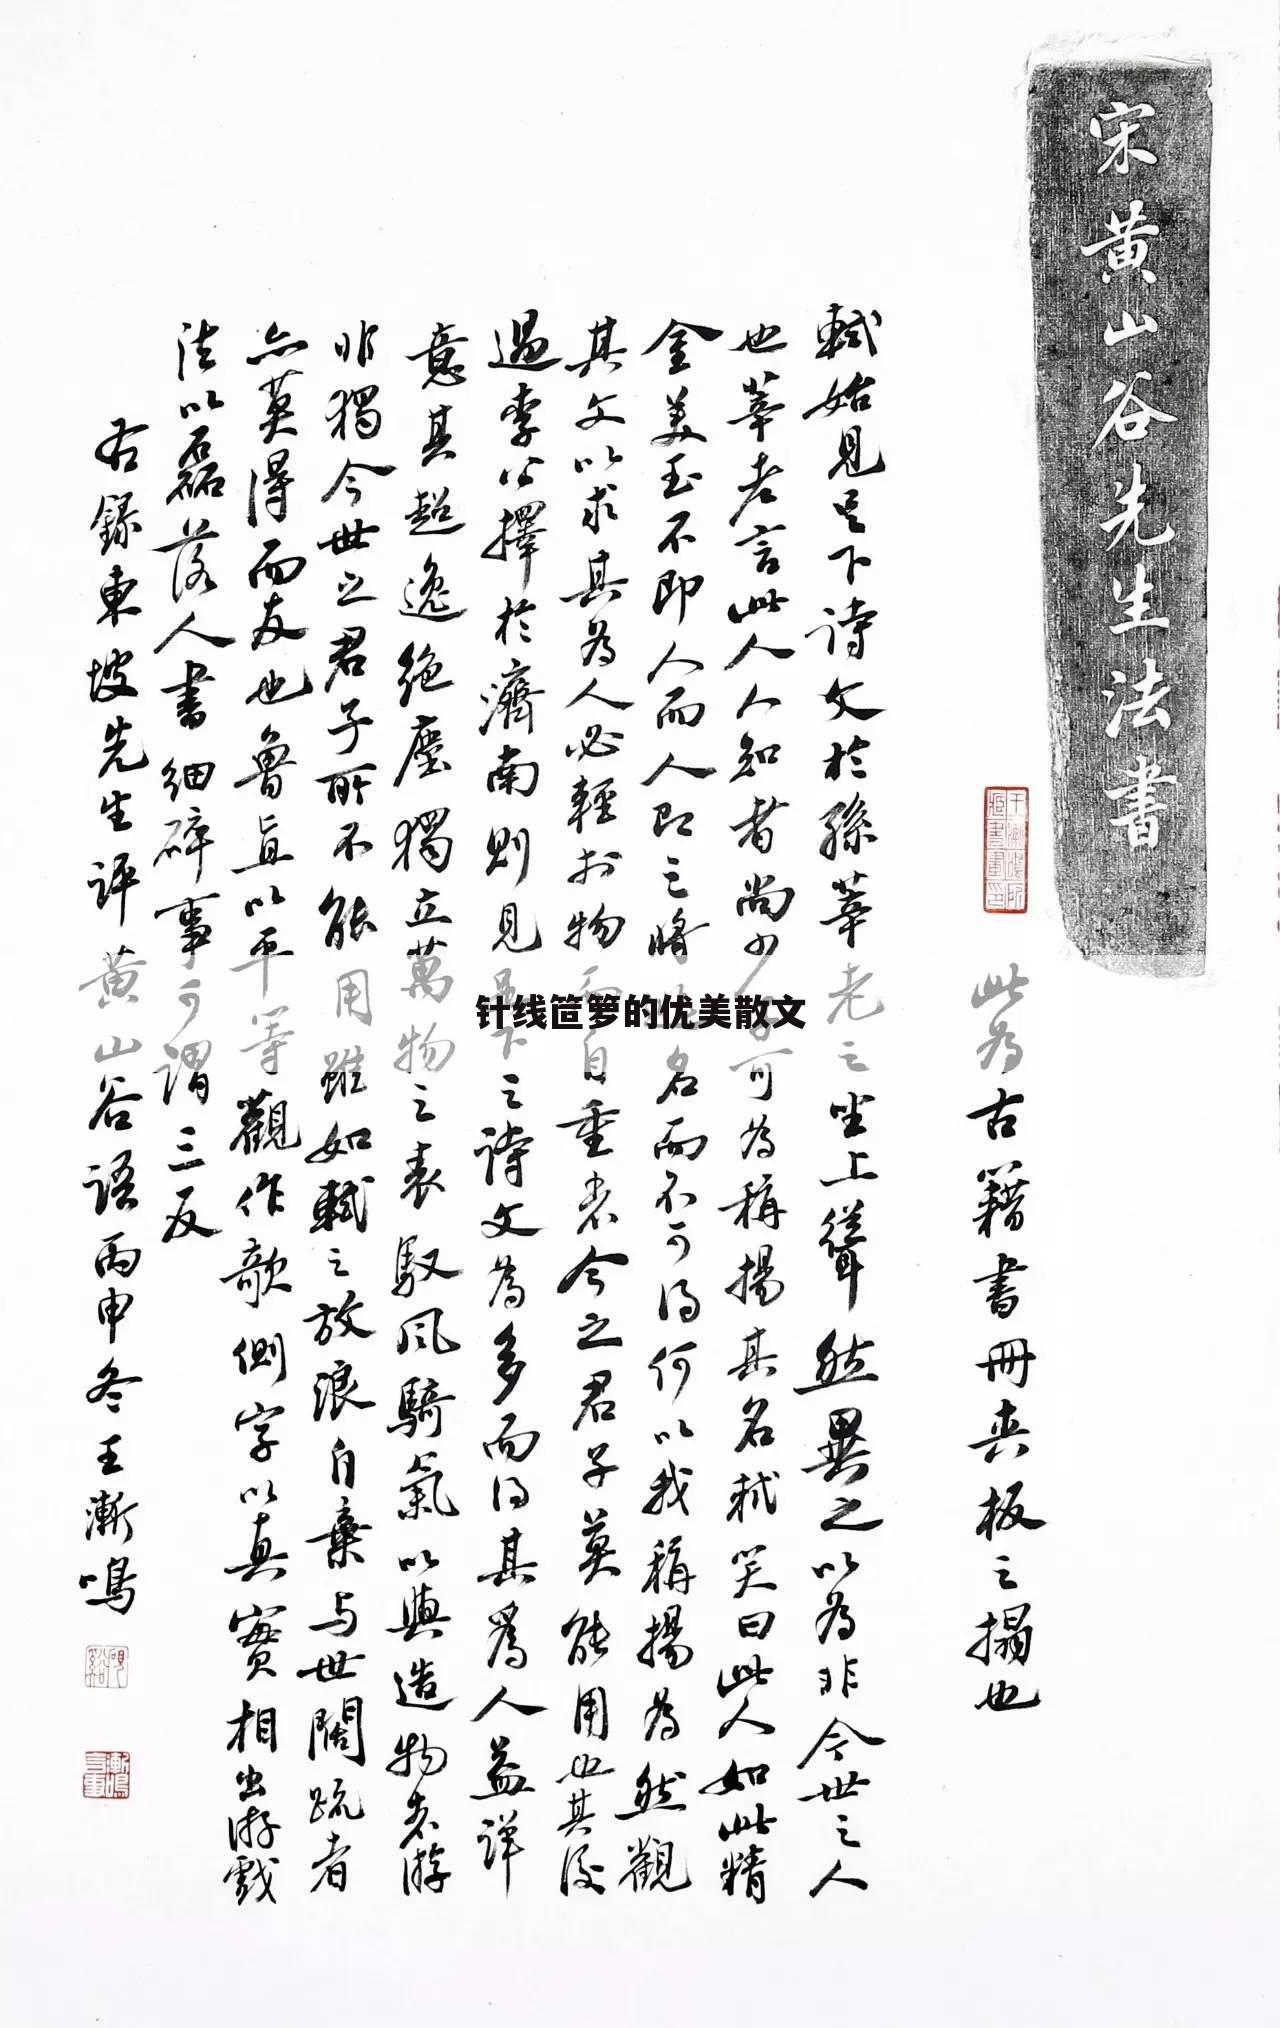 宋黄山谷先生法書
此為古籍書冊夾板之搨也
軾始見足下詩文於孫莘老之坐上聳然異之以為非今世之人
也莘老言此人人知者尚少子可為稱揚其名軾笑曰此人如此精
金美玉不即人而人即之將逃名而不可得何以我稱揚為然觀
其文以求其為人必輕於物而自重者今之君子莫能用也其後
過李公擇於濟南則見足下之詩文為多而得其為人益詳
意其超逸絕塵獨立萬物之表馭風騎氣以與造物者游
非獨今世之君子所不能用雖如軾之放浪自棄與世闊疏者
亦莫得而友也魯直以平等觀作欹側字以真實相出游戲
法以磊落人書細碎事可謂三反
右錄東坡先生評黄山谷語丙申冬王漸鳴
针线笸箩的优美散文